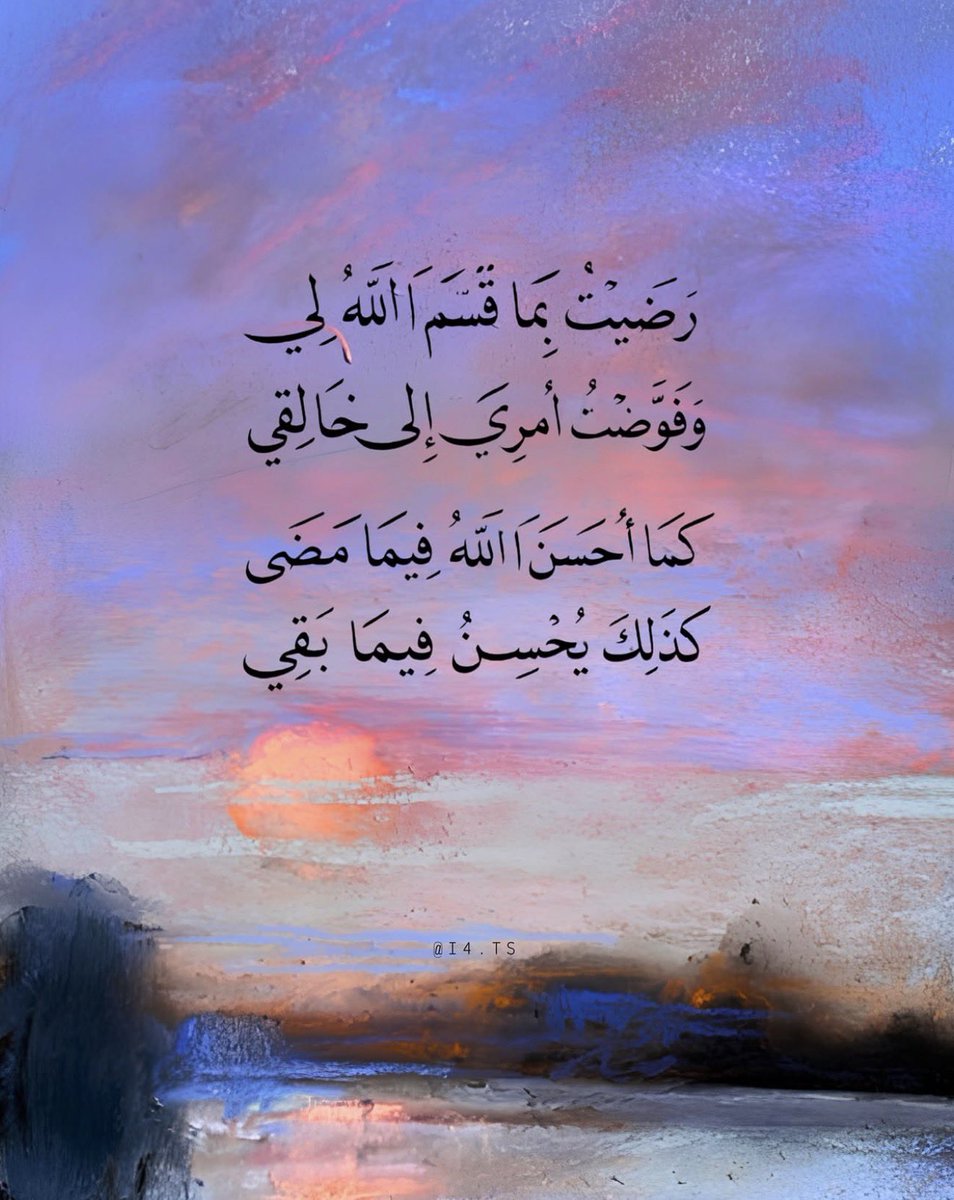 رَضَيتُ بِمَا قُسَّمَ اَللَّهُ لِي
وَفَوَّضتُ أمرِيَ إِلى خَالِقِي
كَمَا أحُسَنَ اَللَّهُ فِيمَا مَضَى
كَذَلِكَ يُحْسِنُ فِيمَا بَقِي
@I4.TS